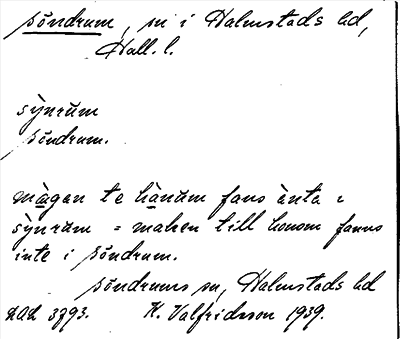 Söndrum, sn i Halmstads hd,
Hall. l.
sỳnrŭm
Söndrum.
màgan te hànŭm fans ànta i
sỳnrŭm = maken till honom fanns
inte i Söndrum.
Söndrums sn, Halmstads hd
DAL 3793. K. Valfridsson 1939.